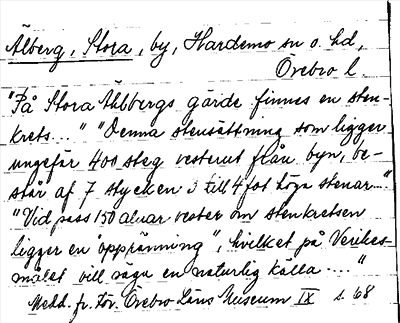 Ålberg, Stora, by, Hardemo sn o. hd,
Örebro l.
"På Stora Åhlbergs gärde finnes en sten-
krets..." "Denna stensättning som ligger
ungefär 400 steg vesterut från byn, be-
står af 7 stycken 3 till 4 fot höga stenar..."
"Vid pass 150 alnar vester om stenkretsen
ligger en "oppränning", hvilket på Verikes-
målet vill säga en naturlig källa...."
Medd. fr. För. Örebro Läns Museum IX s. 68